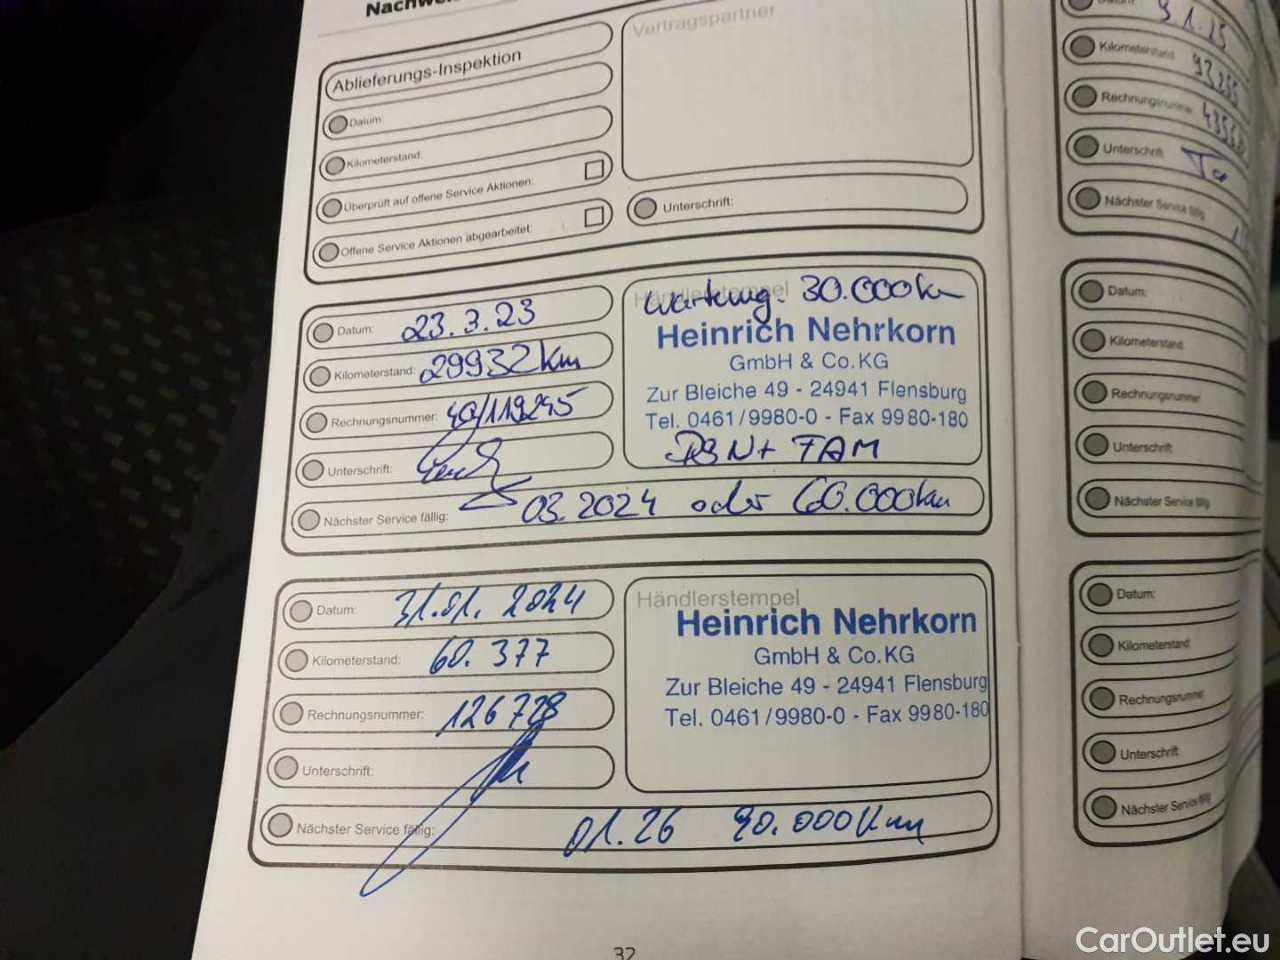 Ablieferungs-Inspektion
Datum
Kilometerstand
Überprüft auf offene Service Aktionen:
Offene Service Aktionen abgearbeitet:
Vertragspartner
Unterschrift:
Datum: 23.3.23
Kilometerstand: 29932 km
Rechnungsnummer:
Unterschrift:
Nächster Service fällig: 03.2024 oder 60.000km
Händlerstempel
Wartung: 30.000km
Heinrich Nehrkorn
GmbH & Co.KG
Zur Bleiche 49 - 24941 Flensburg
Tel. 0461/9980-0 - Fax 9980-180
Datum: 31.01.2024
Kilometerstand: 60.377
Rechnungsnummer: 126728
Unterschrift:
Nächster Service fällig: 01.26 90.000Km
Händlerstempel
Heinrich Nehrkorn
GmbH & Co.KG
Zur Bleiche 49 - 24941 Flensburg
Tel. 0461/9980-0 - Fax 9980-180
32
Kilometerstand:
Rechnungsnummer
Unterschrift
Nächster Service fällig
Datum:
Kilometerstand
Rechnungsnummer
Unterschrift
Nächster Service fällig
Datum:
Kilometerstand
Rechnungsnummer
Unterschrift
Nächster Service fällig
CarOutlet.eu